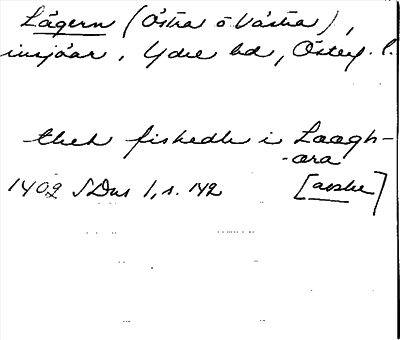 Lägern (Östra o Västra),
insjöar, Ydre hd, Östergl.
thet fiskedh i Laagh-
-ara
1402 SDns 1, s. 142 [avskr]